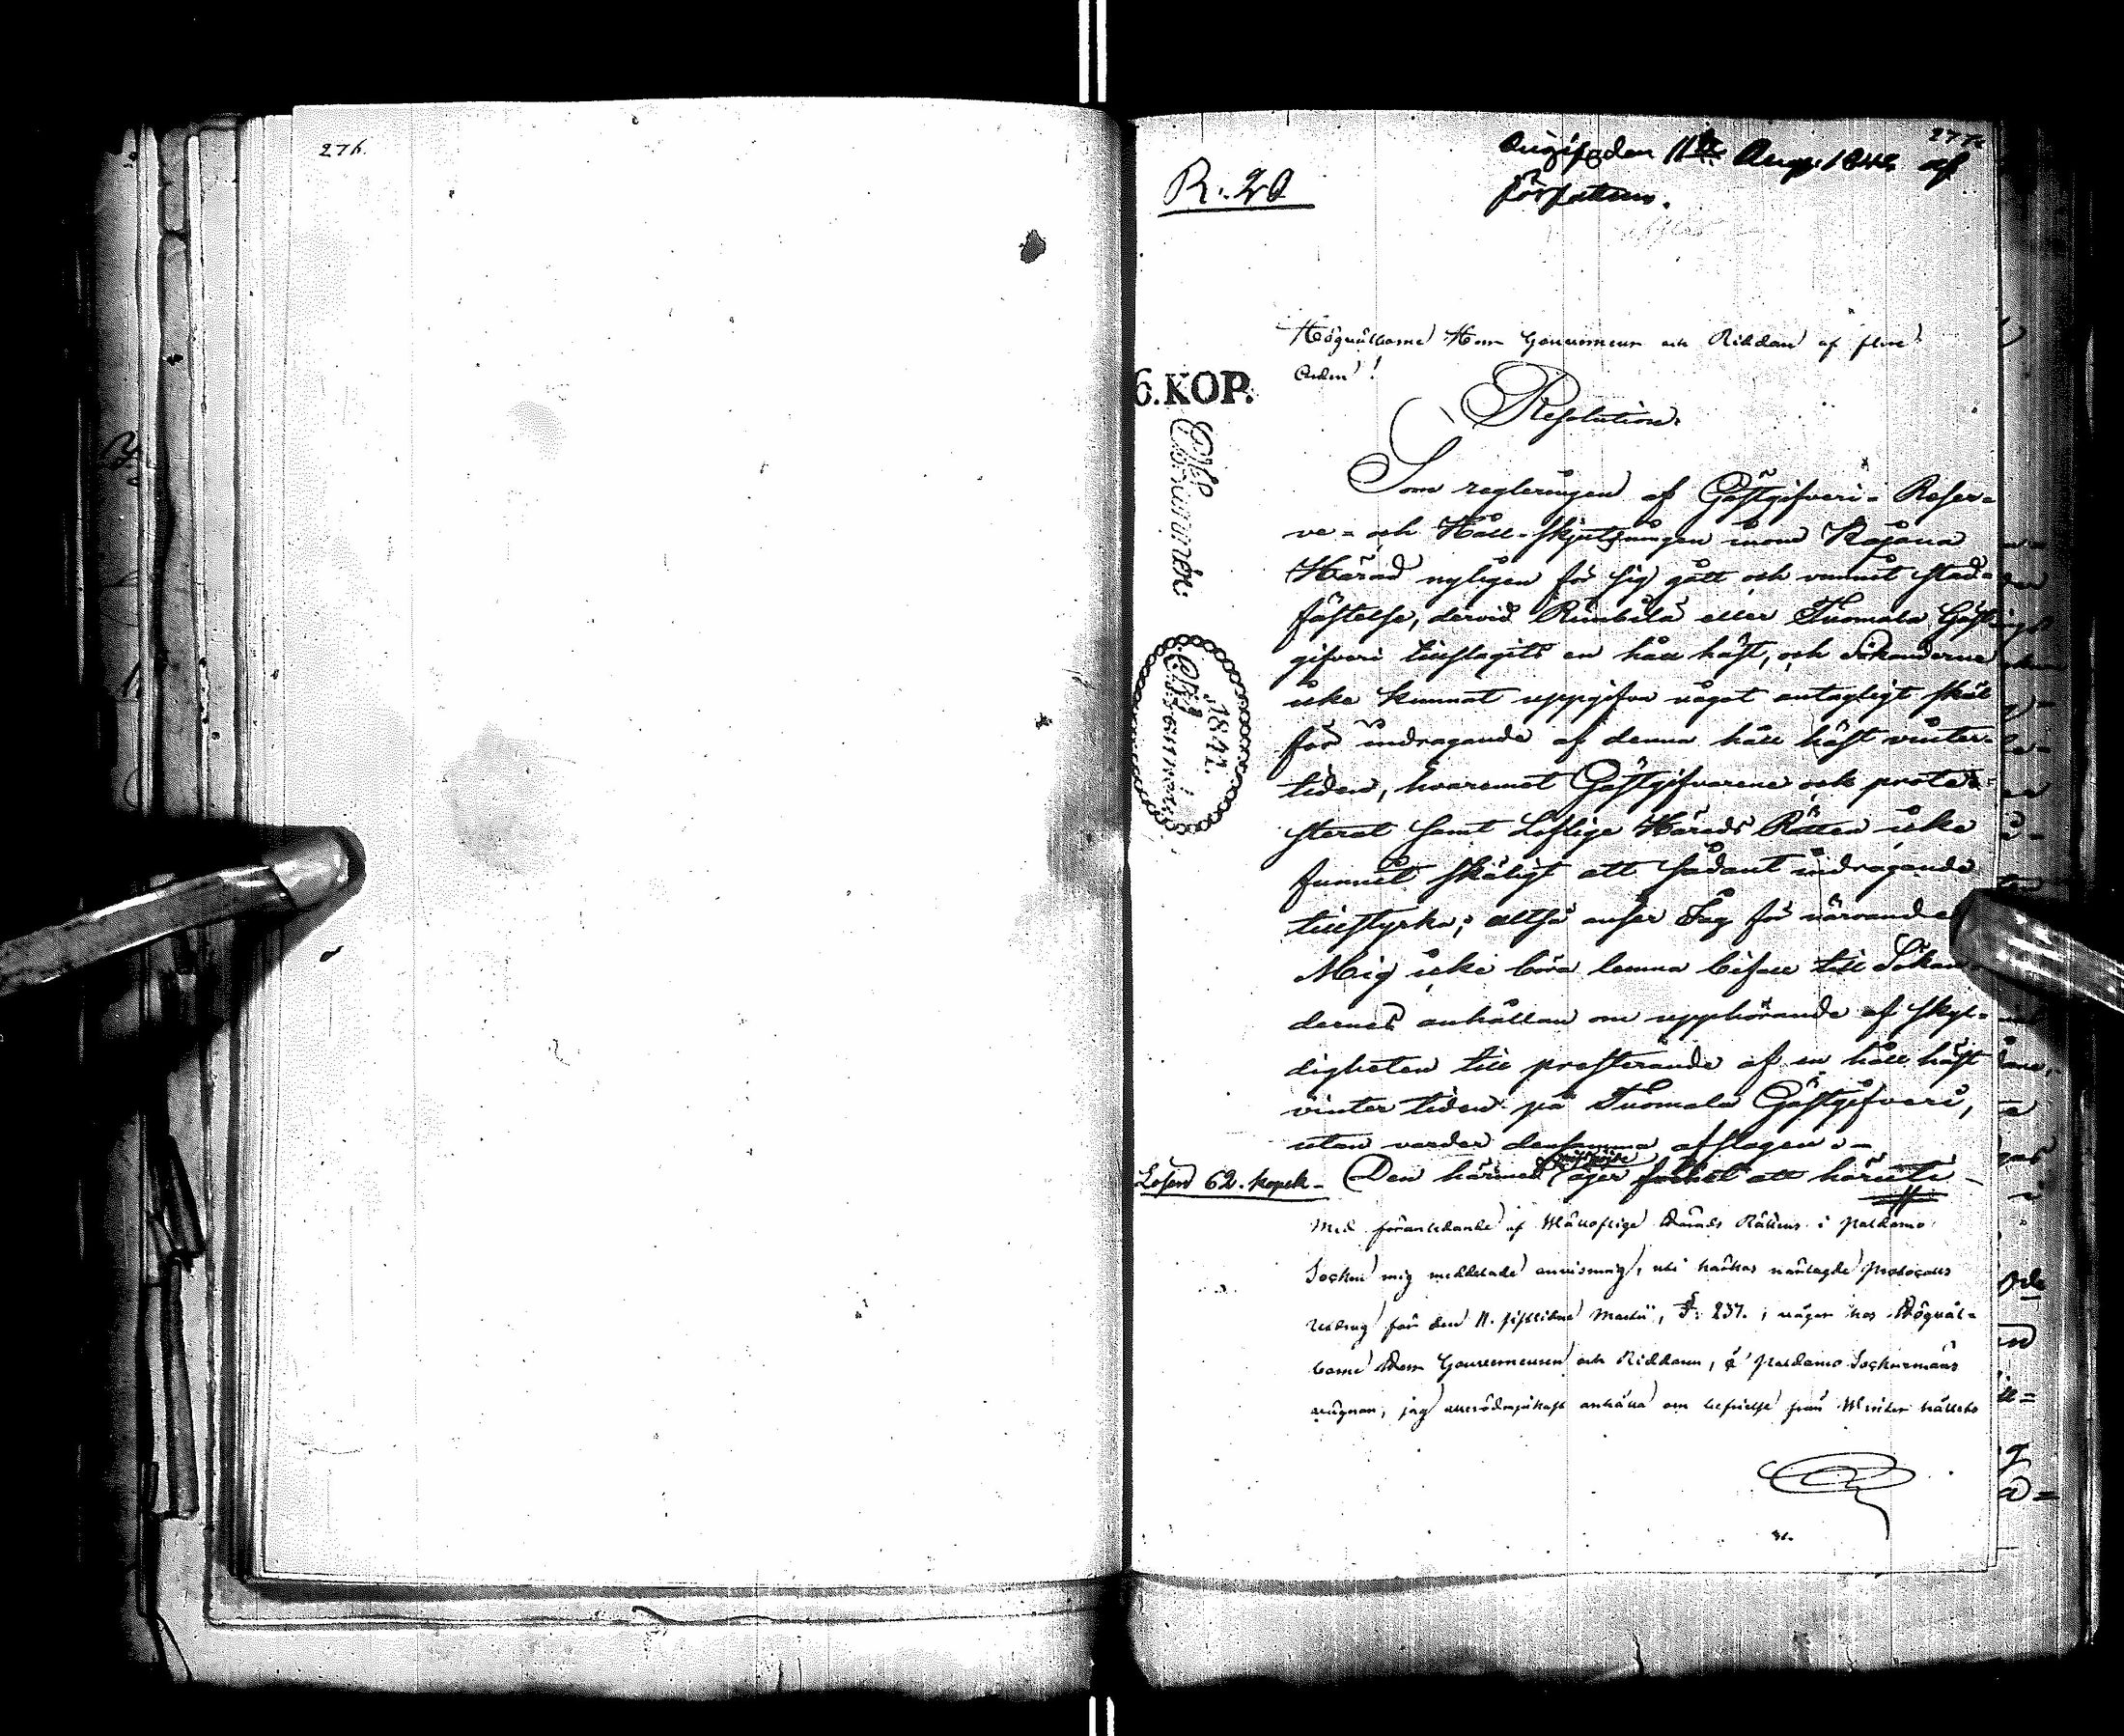 276.
277.
Ingif. den 11te Aug. 1842 af
författaren.
R. 20
Högvälborne Herr Gouverneur och Riddare af flere
Orden!
6. KOP.
Resolution.
Som regleringen af Gästgifveri- Reser-
ve- och Håll-skjutsningen inom Kajana
Härad nyligen för sig gått och vunnit stad-
fästelse, dervid Rimbilä eller Tuomala Gäst-
gifveri tillslagits en håll häst, och Sökanderne
icke kunnat uppgifva något antagligt skäl
för indragande af denna håll häst vinter-
tiden, hvaremot Gästgifvarene ock prote-
sterat samt Loflige Härads Rätten icke
funnit skäligt att sådant indragande
tillstyrka; altså anser Jag för närvarande
Mig icke böra lemna bifall till Sökan-
dernes anhållan om upphörande af skyl-
digheten till presterande af en håll häst
vinter tiden på Tuomala Gästgifveri,
utan varder densamma afslagen.-
Lösen 62. kopek- Den härmed missnöjde äger att häruti
Med föranledande af Välloflige Härads Rättens i Paldamo
Sockn mig meddelade anvisning, uti härhos närlagde Protocolls
Utdrag för den 11. sistlidne Martii, §. 237., vågar hos Högväl-
borne Herr Gouverneuren och Riddaren, å Paldamo Socknemäns
vägnar, jag allerödmjukast anhålla om befrielse från Winter hållets